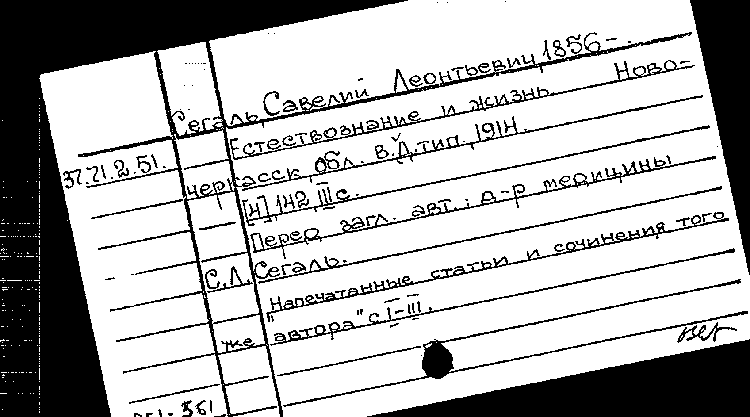 Сегаль, Савелий Леонтьевич, 1856– .
Естествознание и жизнь. Ново=
37.21.2.51.
черкасск, Обл. в. Д. тип., 1914.
[4], 142, III с.
Перед загл. авт.: д-р медицины
С. Л. Сегаль.
"Напечатанные статьи и сочинения того
же автора" с I–III.